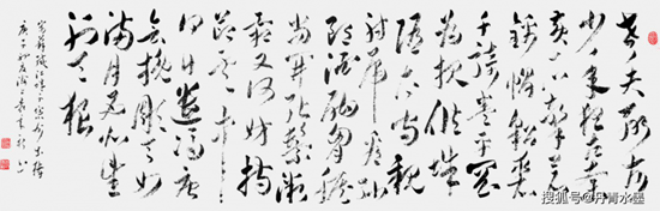 老夫聊发
少年狂左牵
黄右擎苍
锦帽貂裘
千骑卷平冈
为报倾城
随太守亲
射虎看孙
郎酒酣胸胆
尚开张鬓微
霜又何妨持
节云中
何日遣冯唐
会挽雕弓如
满月西北望
射天狼
苏轼江城子密州出猎
庚子初夏
搜狐号@丹青水墨